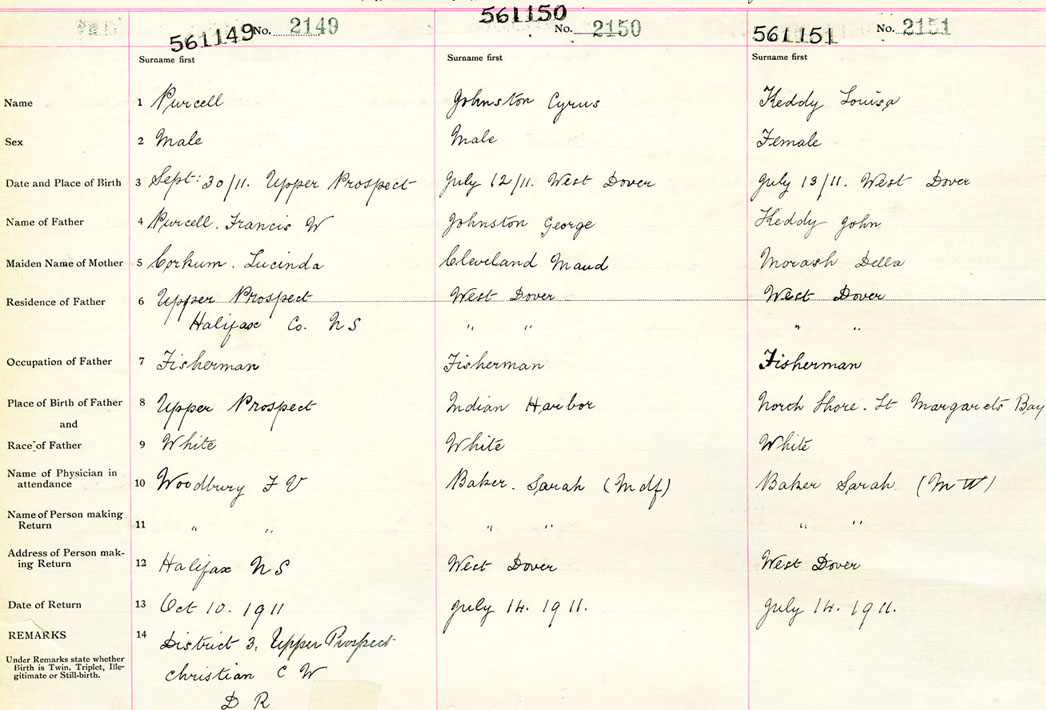 561149 No. 2149
561150 No. 2150
561151 No. 2151
Surname first Surname first Surname first
Name 1 Purcell Johnston Cyrus Keddy Louisa
Sex 2 Male Male Female
Date and Place of Birth 3 Sept: 30/11. Upper Prospect July 12/11. West Dover July 13/11. West Dover
Name of Father 4 Purcell. Francis W Johnston George Keddy John
Maiden Name of Mother 5 Corkum. Lucinda Cleveland Maud Morash Della
Residence of Father 6 Upper Prospect West Dover West Dover
Halifax Co. N S " " " "
Occupation of Father 7 Fisherman Fisherman Fisherman
Place of Birth of Father 8 Upper Prospect Indian Harbor North Shore. St Margarets Bay
and
Race of Father 9 White White White
Name of Physician in
attendance 10 Woodbury F V Baker. Sarah (Mdf) Baker Sarah
Name of Person making
Return 11 " " " " " "
Address of Person mak-
ing Return 12 Halifax N S West Dover West Dover
Date of Return 13 Oct 10. 1911 July 14. 1911. July 14. 1911.
REMARKS 14 District 3, Upper Prospect
Under Remarks state whether
Birth is Twin, Triplet, Ille-
gitimate or Still-birth.
christian C W
D R